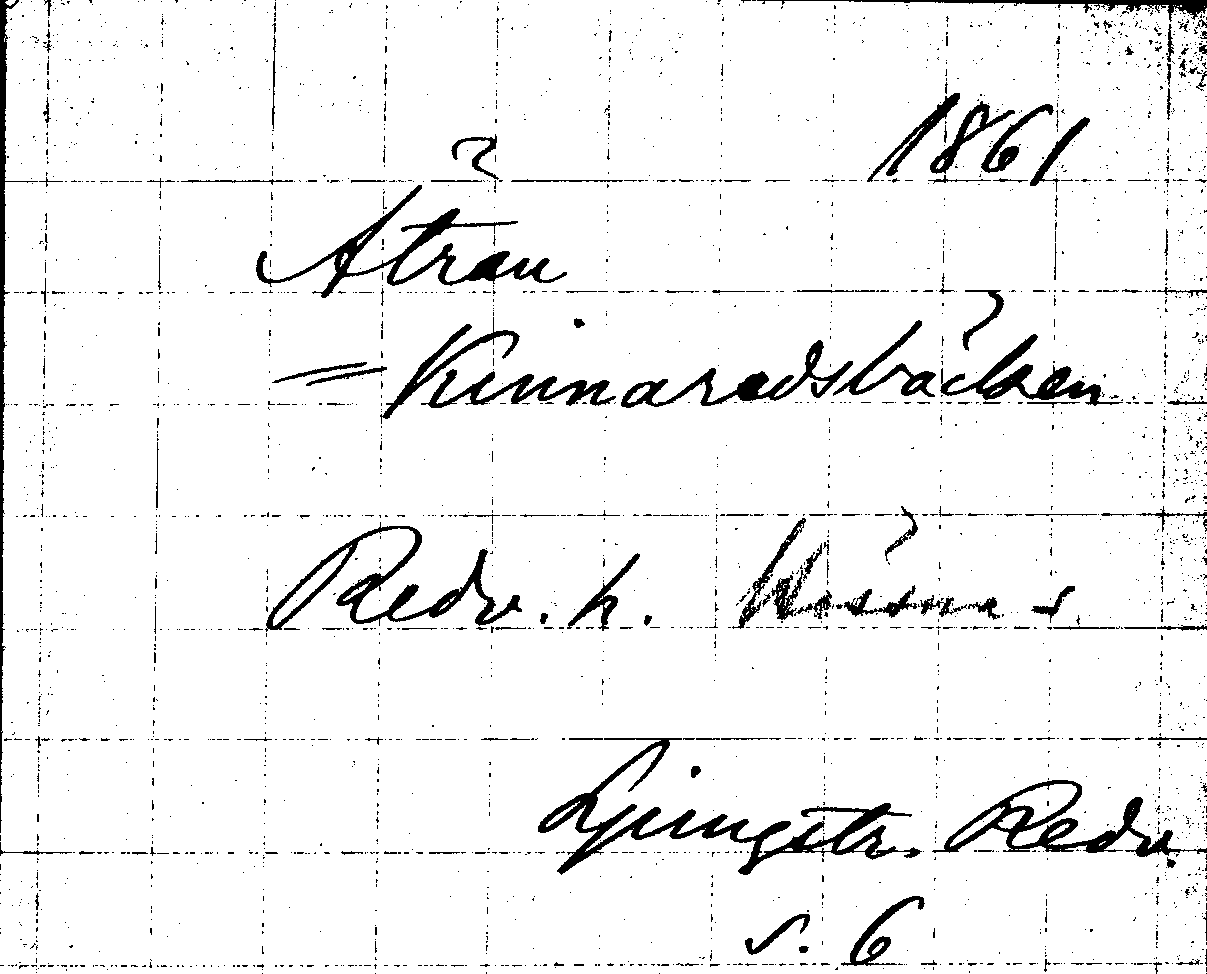 1861
Ätran
= Kinnaredsbäcken
Redv. h.
Ljungstr. Redv.
s. 6